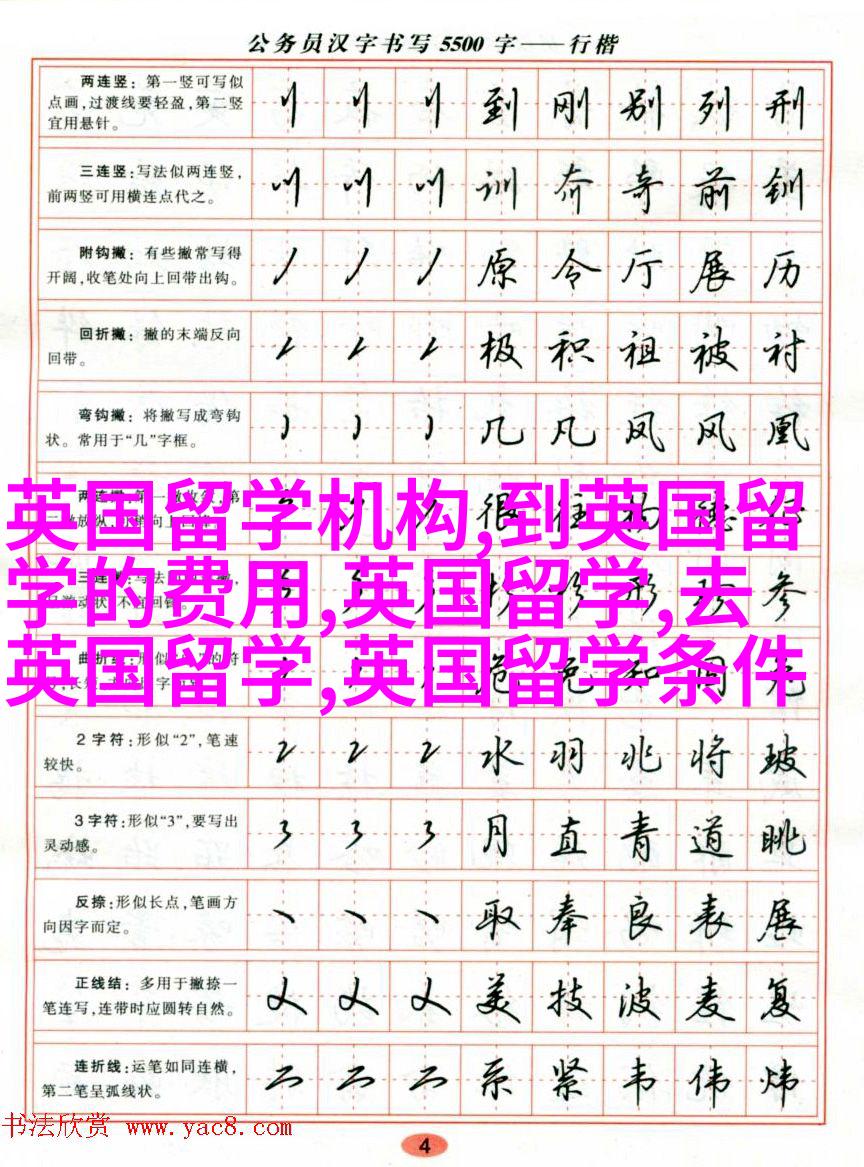 公务员汉字书写5500字——行楷
两连竖：第一竖可写似 刂 刂 刂 到 刚 别 列 刑
点画，过渡线要轻盈，第二竖
宜用悬针。
三连竖：写法似两连竖， 训 夼 奇 前 钏
前两竖可用横连点代之。
附钩撇：有些撇常写得 原 令 厅 展 历
开阔，收笔处向上回带出钩。
回折撇：撇的末端反向 极 积 祖 被 衬
回带。
弯钩撇：将撇写成弯钩 几 凡 凤 风 凰
状。常用于“几”字框。
英国留学机构,到英国留
学的费用,英国留学,去
英国留学,英国留学条件
很 往
形 珍 参
2字符：形似“2”，笔速 水 羽 兆 将 玻
较快。
3字符：形似“3”，要写出 月 直 青 道 眺
灵动感。
反捺：形似长点，笔画方 取 奉 良 表 展
向因字而定。
正线结：多用于撇捺一 美 技 波 麦 复
笔连写，连带时应圆转自然。
连折线：运笔如同连横， 系 紧 韦 伟 炜
第二笔呈弧线状。
书法欣赏 www.yac8.com
4